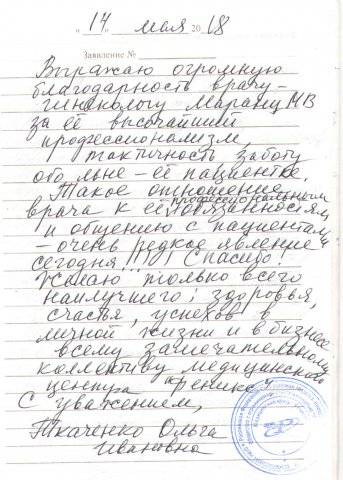 „ 14 " мая 20 18
Заявление №
Выражаю огромную
благодарность врачу -
гинекологу Маранц МВ
за её высочайший
профессионализм,
тактичность заботу
обо мне - её пациентке.
Такое отношение
врача к её профессиональным
обязанностям
и общению с пациентами
- очень редкое явление
сегодня!!! Спасибо!
Желаю только всего
наилучшего: здоровья,
счастья, успехов в
личной жизни и в бизнесе
всему замечательному
коллективу медицинского
центра "Феникс"
С уважением,
Ткаченко Ольга
Ивановна